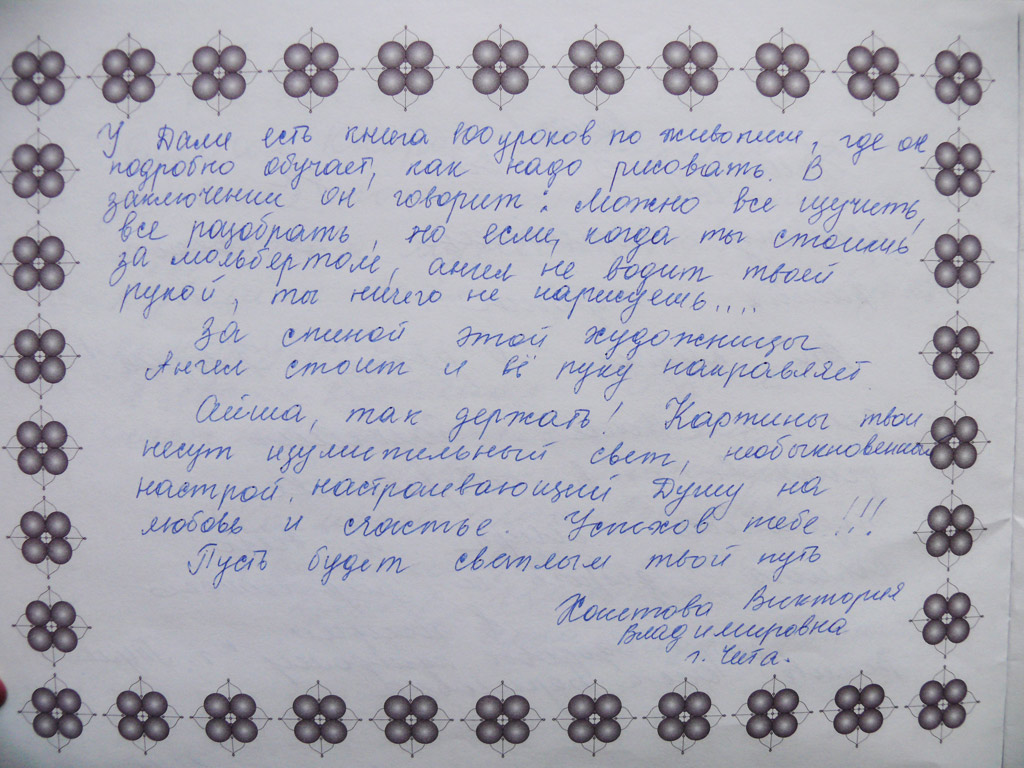 У Дали есть книга 100 уроков по живописи, где он
подробно обучает, как надо рисовать. В
заключении он говорит: Можно все изучить,
все разобрать, но если, когда ты стоишь
за мольбертом, ангел не водит твоей
рукой, ты ничего не нарисуешь....
За спиной этой художницы
Ангел стоит и её руку направляет
Айша, так держать! Картины твои
несут изумительный свет, необыкновенный
настрой, настраивающий Душу на
любовь и счастье. Успехов тебе!!!!
Пусть будет светлым твой путь
Виктория
Владимировна
г. Чита.